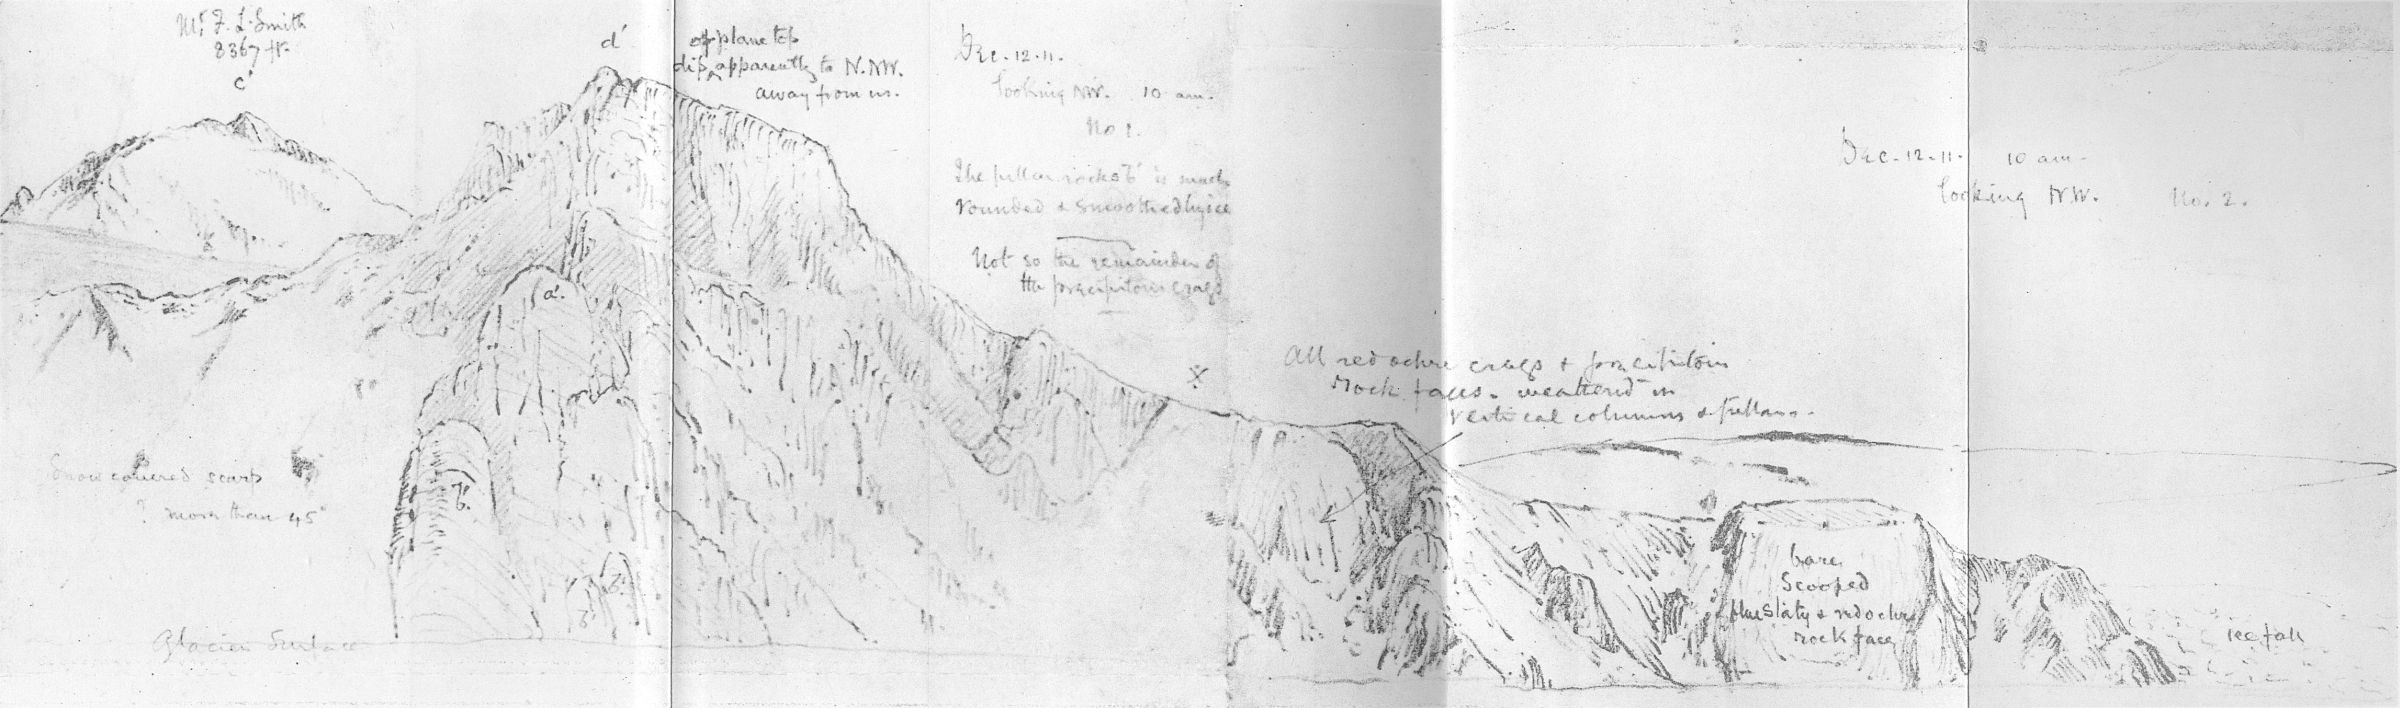 Mt F. L. Smith
8367 ft.
c'
d'
of plane top
dip apparently to N.NW.
away from us.
Dec. 12. 11.
looking NW. 10 am.
No 1.
The pillar rocks b' is much
rounded & smoothed by ice
Not so the remainder of
the precipitous crags
a'.
b'.
b'.
b'
Snow covered scarp
? more than 45°
Glacier Surface
X
All red ochre crags & precipitous
rock faces. weathered in
vertical columns & pillars.
Dec. 12. 11. 10 am.
looking NW. No. 2.
bare
Scooped
blue slaty & red ochre
rock face
ice fall